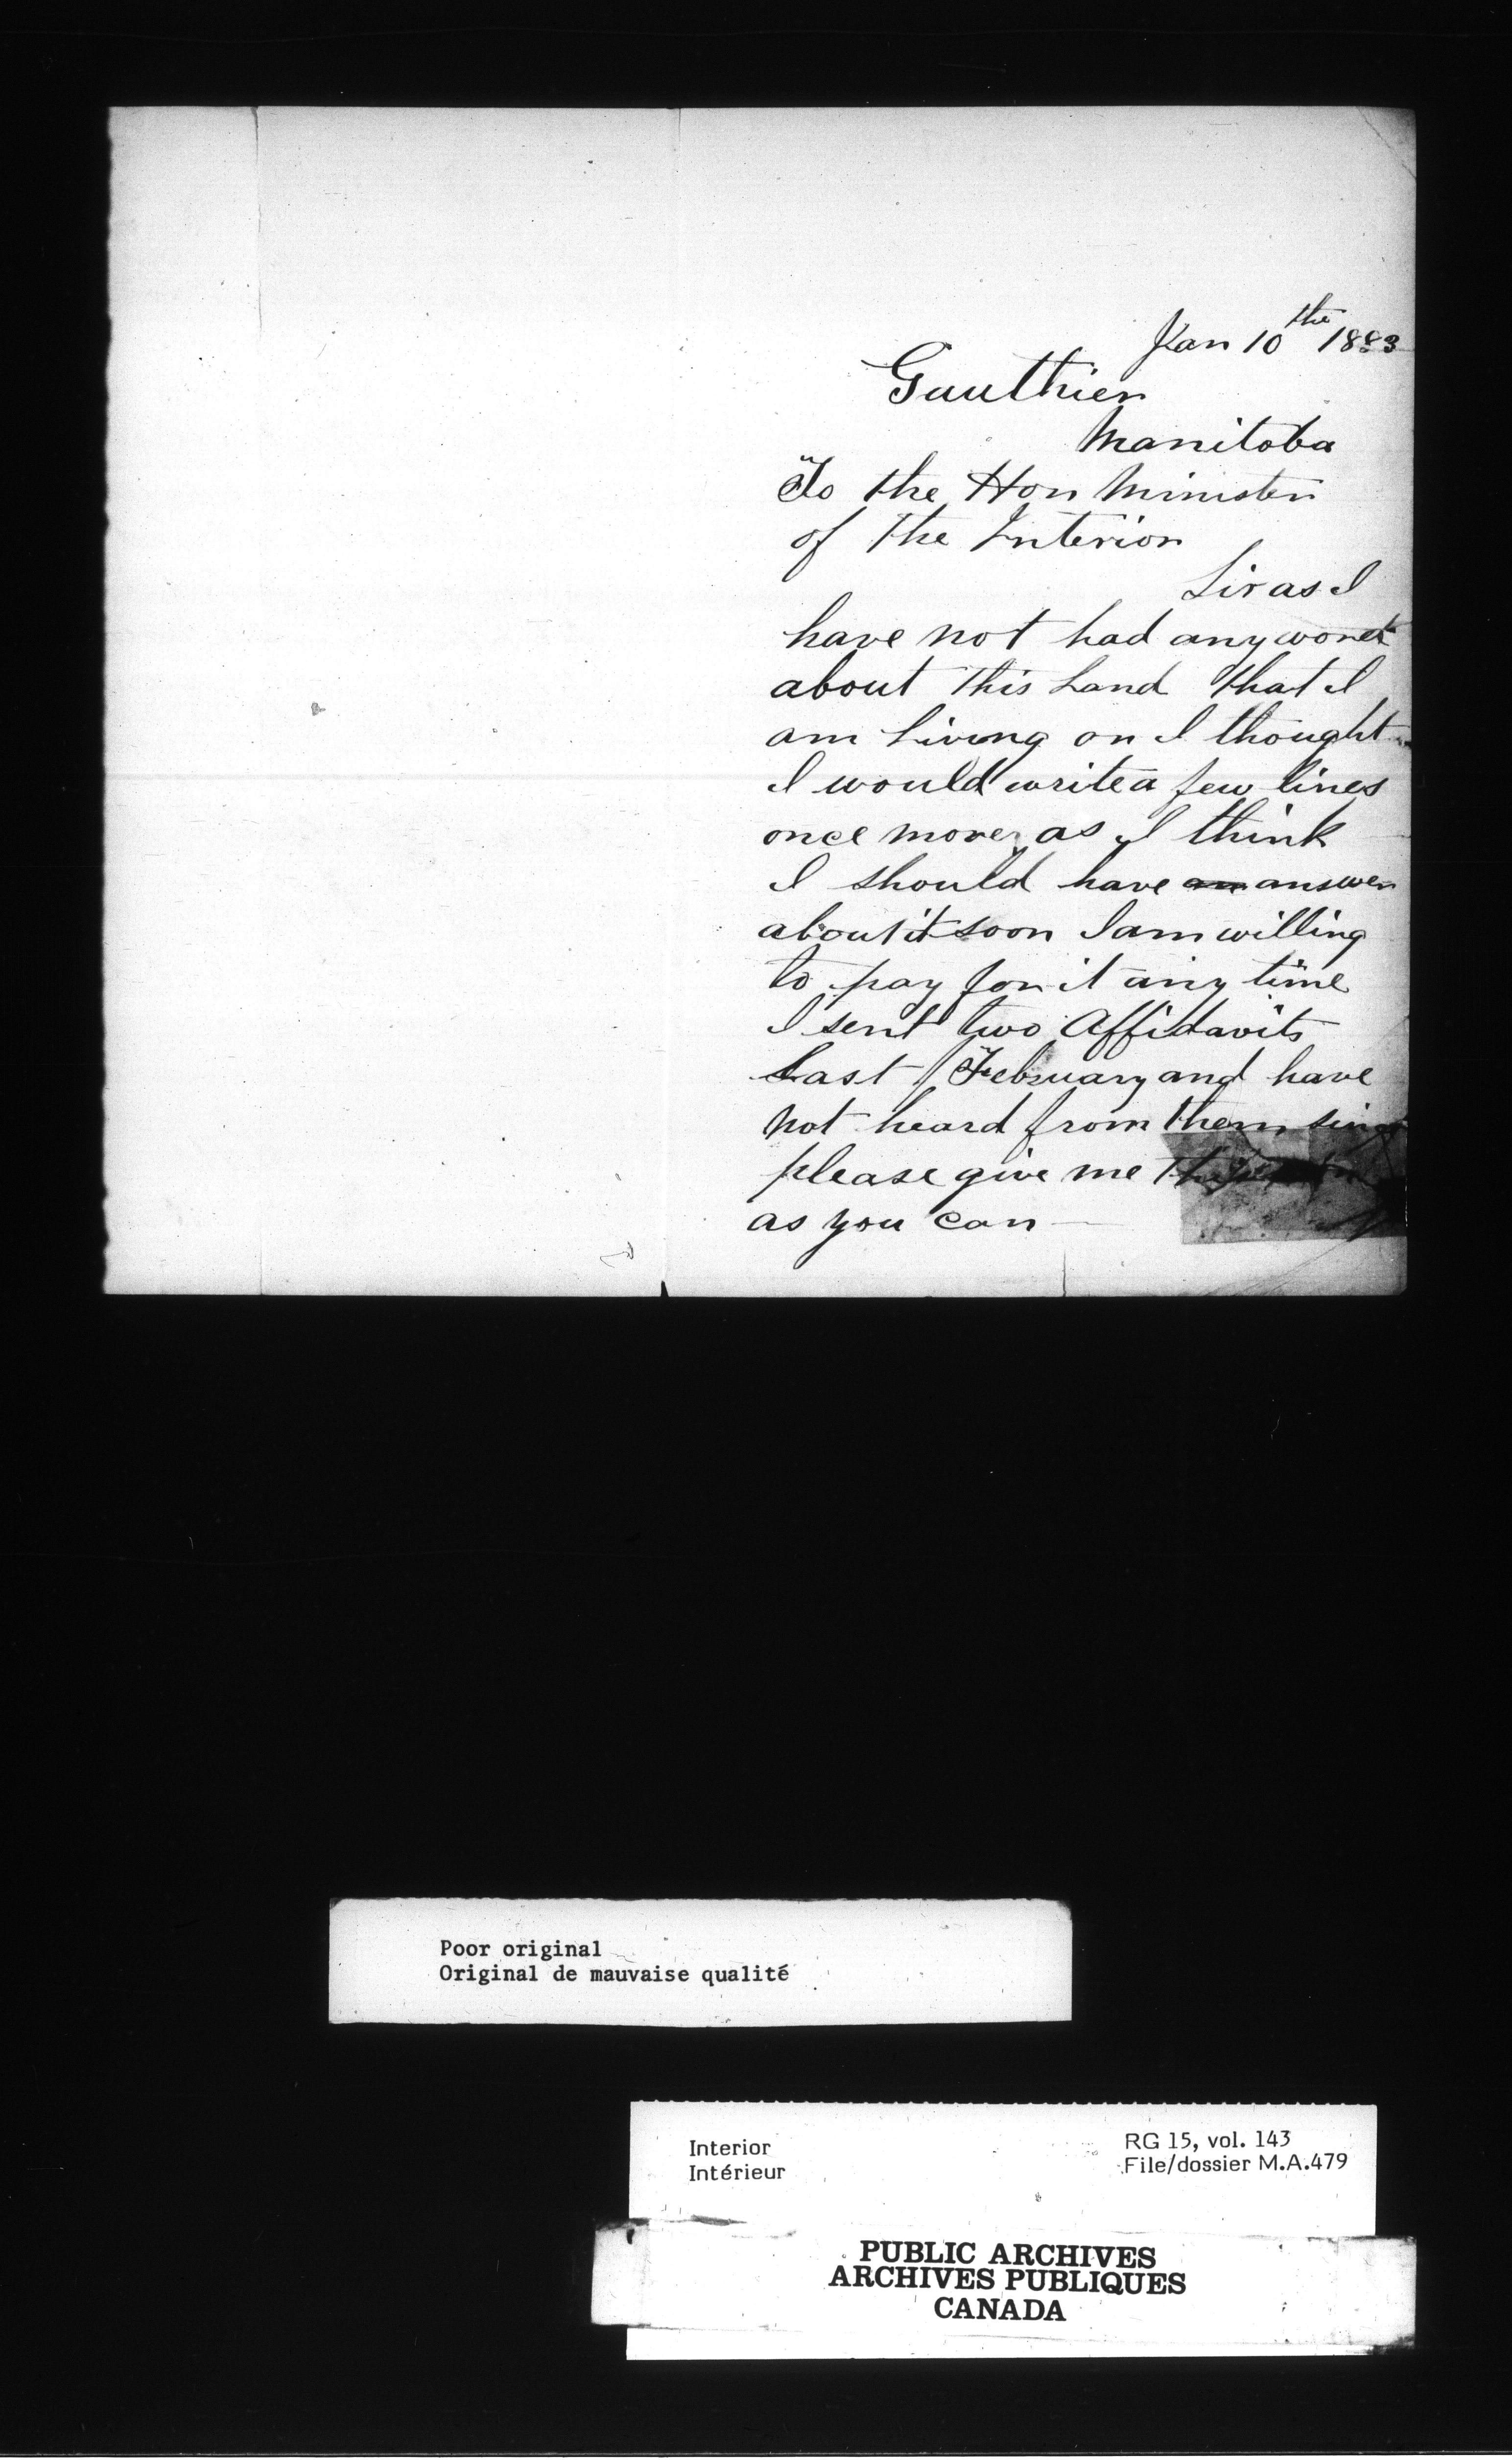 Jan 10th 1883
Gauthier
Manitoba
To the Hon Minister
of The Interior
Sir as I
have not had any word
about this Land that I
am Living on I thought
I would write a few lines
once more as I think
I should have an answer
about it soon I am willing
to pay for it any time
I sent two Affidavits
Last February and have
not heard from them since
please give me
as you can
Poor original
Original de mauvaise qualité
Interior
Intérieur
RG 15, vol. 143
File/dossier M.A.479
PUBLIC ARCHIVES
ARCHIVES PUBLIQUES
CANADA